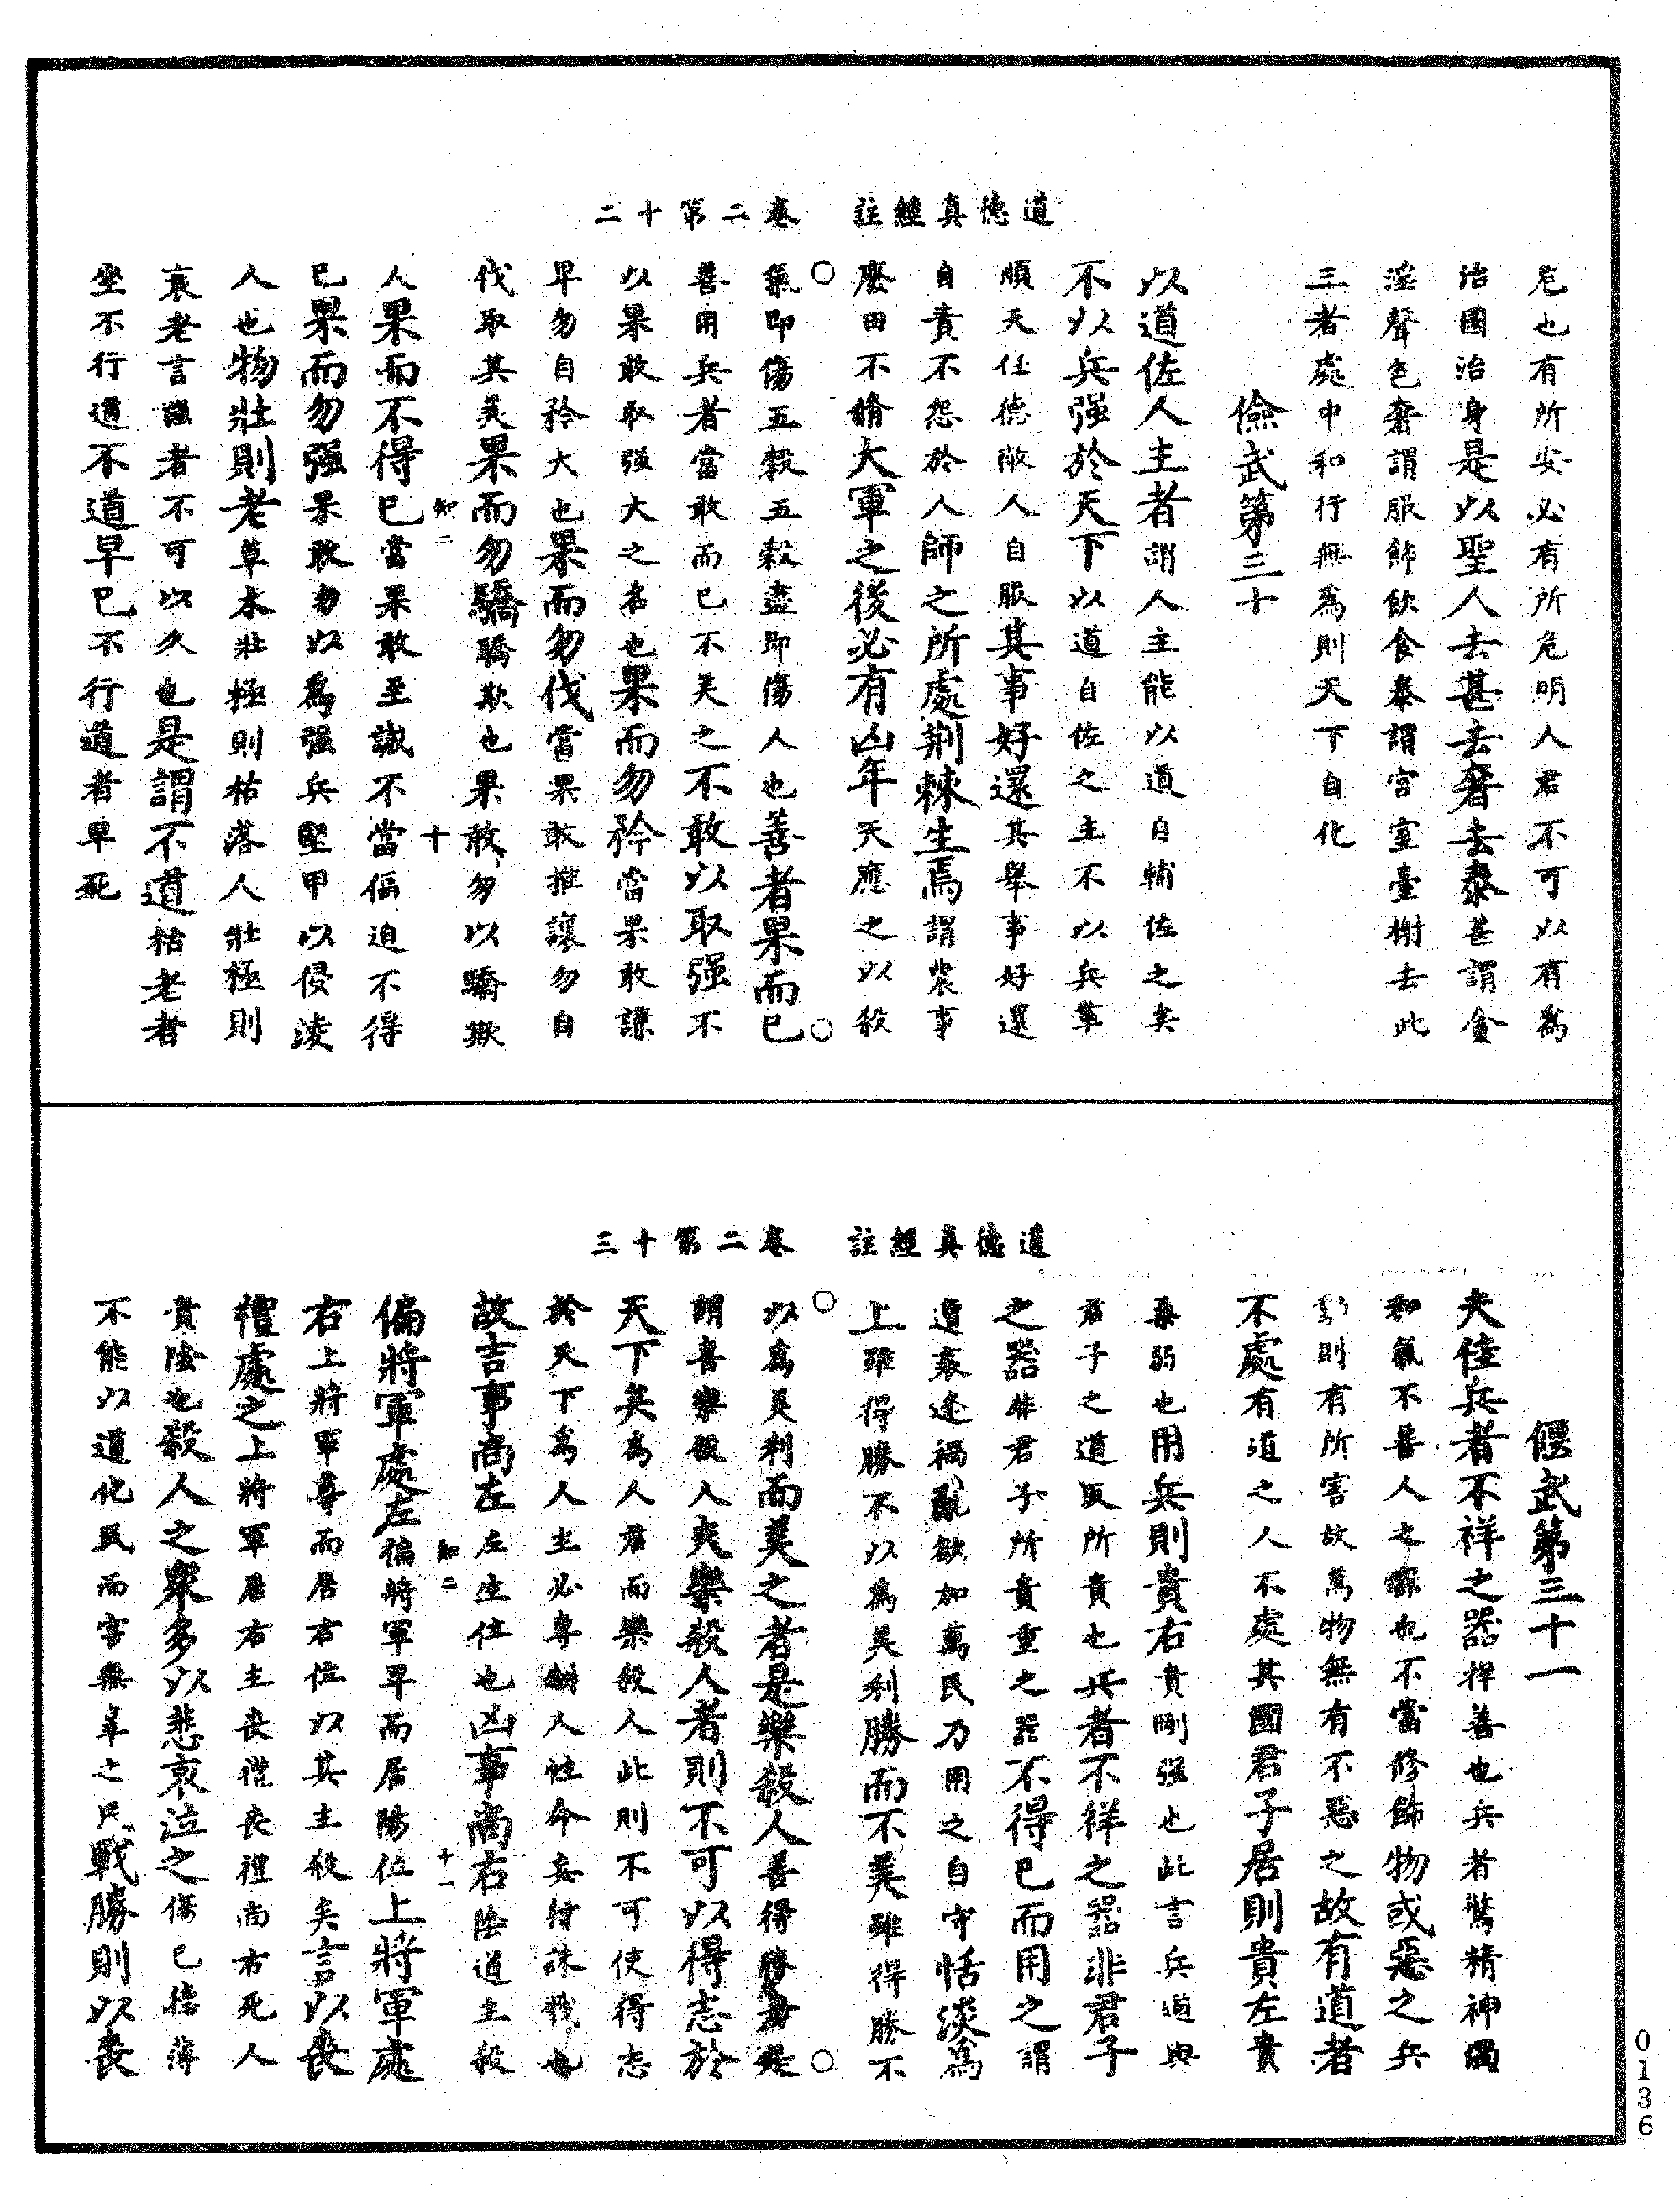 道德真經註　卷二第十二
危也有所安必有所危明人君不可以有為
治國治身是以聖人去甚去奢去泰甚謂貪
淫聲色奢謂服飾飲食泰謂宮室臺榭去此
三者處中和行無為則天下自化
儉武第三十
以道佐人主者謂人主能以道自輔佐之矣
不以兵强於天下以道自佐之主不以兵革
順天任德敵人自服其事好還其舉事好還
自責不怨於人師之所處荆棘生焉謂農事
廢田不脩大軍之後必有凶年天應之以殺
氣即傷五穀五穀盡即傷人也善者果而已
善用兵者當敢而已不美之不敢以取强不
以果敢取强大之名也果而勿矜當果敢謙
早勿自矜大也果而勿伐當果敢推讓勿自
伐取其美果而勿驕驕欺也果敢勿以驕欺
知二　十
人果而不得已當果敢至誠不當偪迫不得
已果而勿强果敢勿以為强兵堅甲以侵淩
人也物壯則老草木壯極則枯落人壯極則
衰老言强者不可以久也是謂不道枯老者
坐不行道不道早已不行道者早死
道德真經註　卷二第十三
偃武第三十一
夫佳兵者不祥之器祥善也兵者驚精神濁
和氣不善人之器也不當修飾物或惡之兵
動則有所害故萬物無有不惡之故有道者
不處有道之人不處其國君子居則貴左貴
柔弱也用兵則貴右貴剛强也此言兵道與
君子之道反所貴也兵者不祥之器非君子
之器非君子所貴重之器不得已而用之謂
遭衰逢禍亂欲加萬民乃用之自守恬淡為
上雖得勝不以為美利勝而不美雖得勝不
以為美利而美之者是樂殺人善得勝者是
謂喜樂殺人夫樂殺人者則不可以得志於
天下矣為人君而樂殺人此則不可使得志
於天下為人主必專制人性命妄行誅戮也
故吉事尚左左生位也凶事尚右陰道主殺
知二　十一
偏將軍處左偏將軍早而居陽位上將軍處
右上將軍尊而居右位以其主殺矣言以喪
禮處之上將軍居右主喪禮喪禮尚右死人
貴陰也殺人之衆多以悲哀泣之傷己德薄
不能以道化民而害無辜之民戰勝則以喪
0136